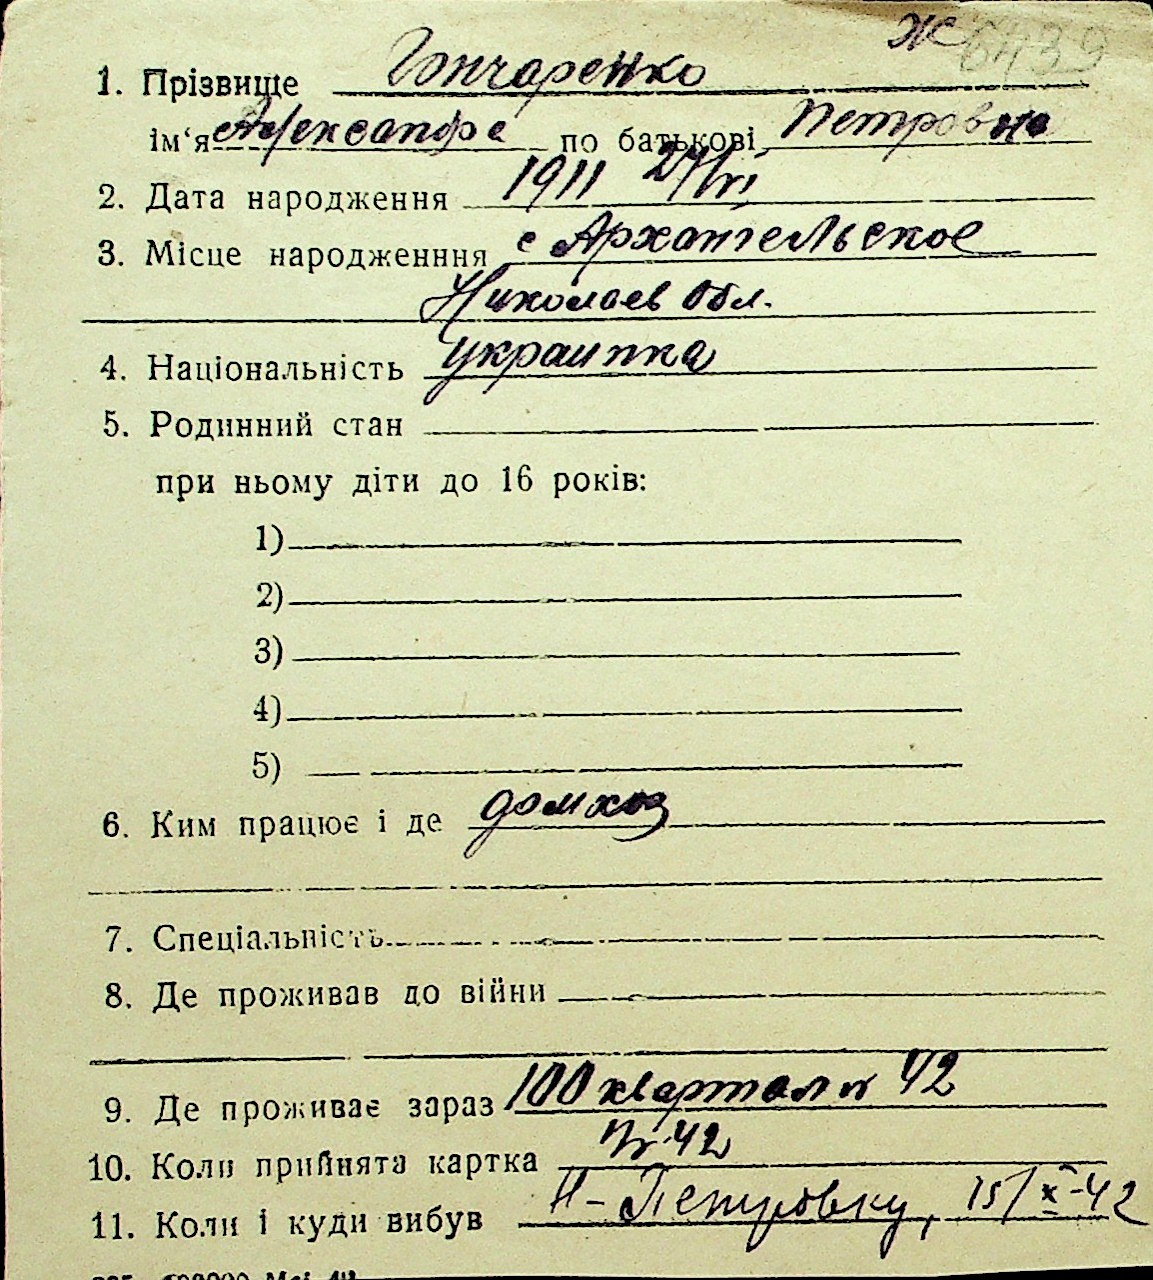 Ж 6439
1. Прізвище Гончаренко
ім‘я Александра по батькові Петровна
2. Дата народження 1911 27/VII
3. Місце народженння с Архангельское
Николаев Обл.
4. Національність украинка
5. Родинний стан
при ньому діти до 16 років:
1)
2)
3)
4)
5)
6. Ким працює і де домхоз
7. Спеціальність
8. Де проживав до війни
9. Де проживає зараз 100 квартал 42
10. Коли прийнята картка 42
11. Коли і куди вибув Н-Петровку, 15/X-42